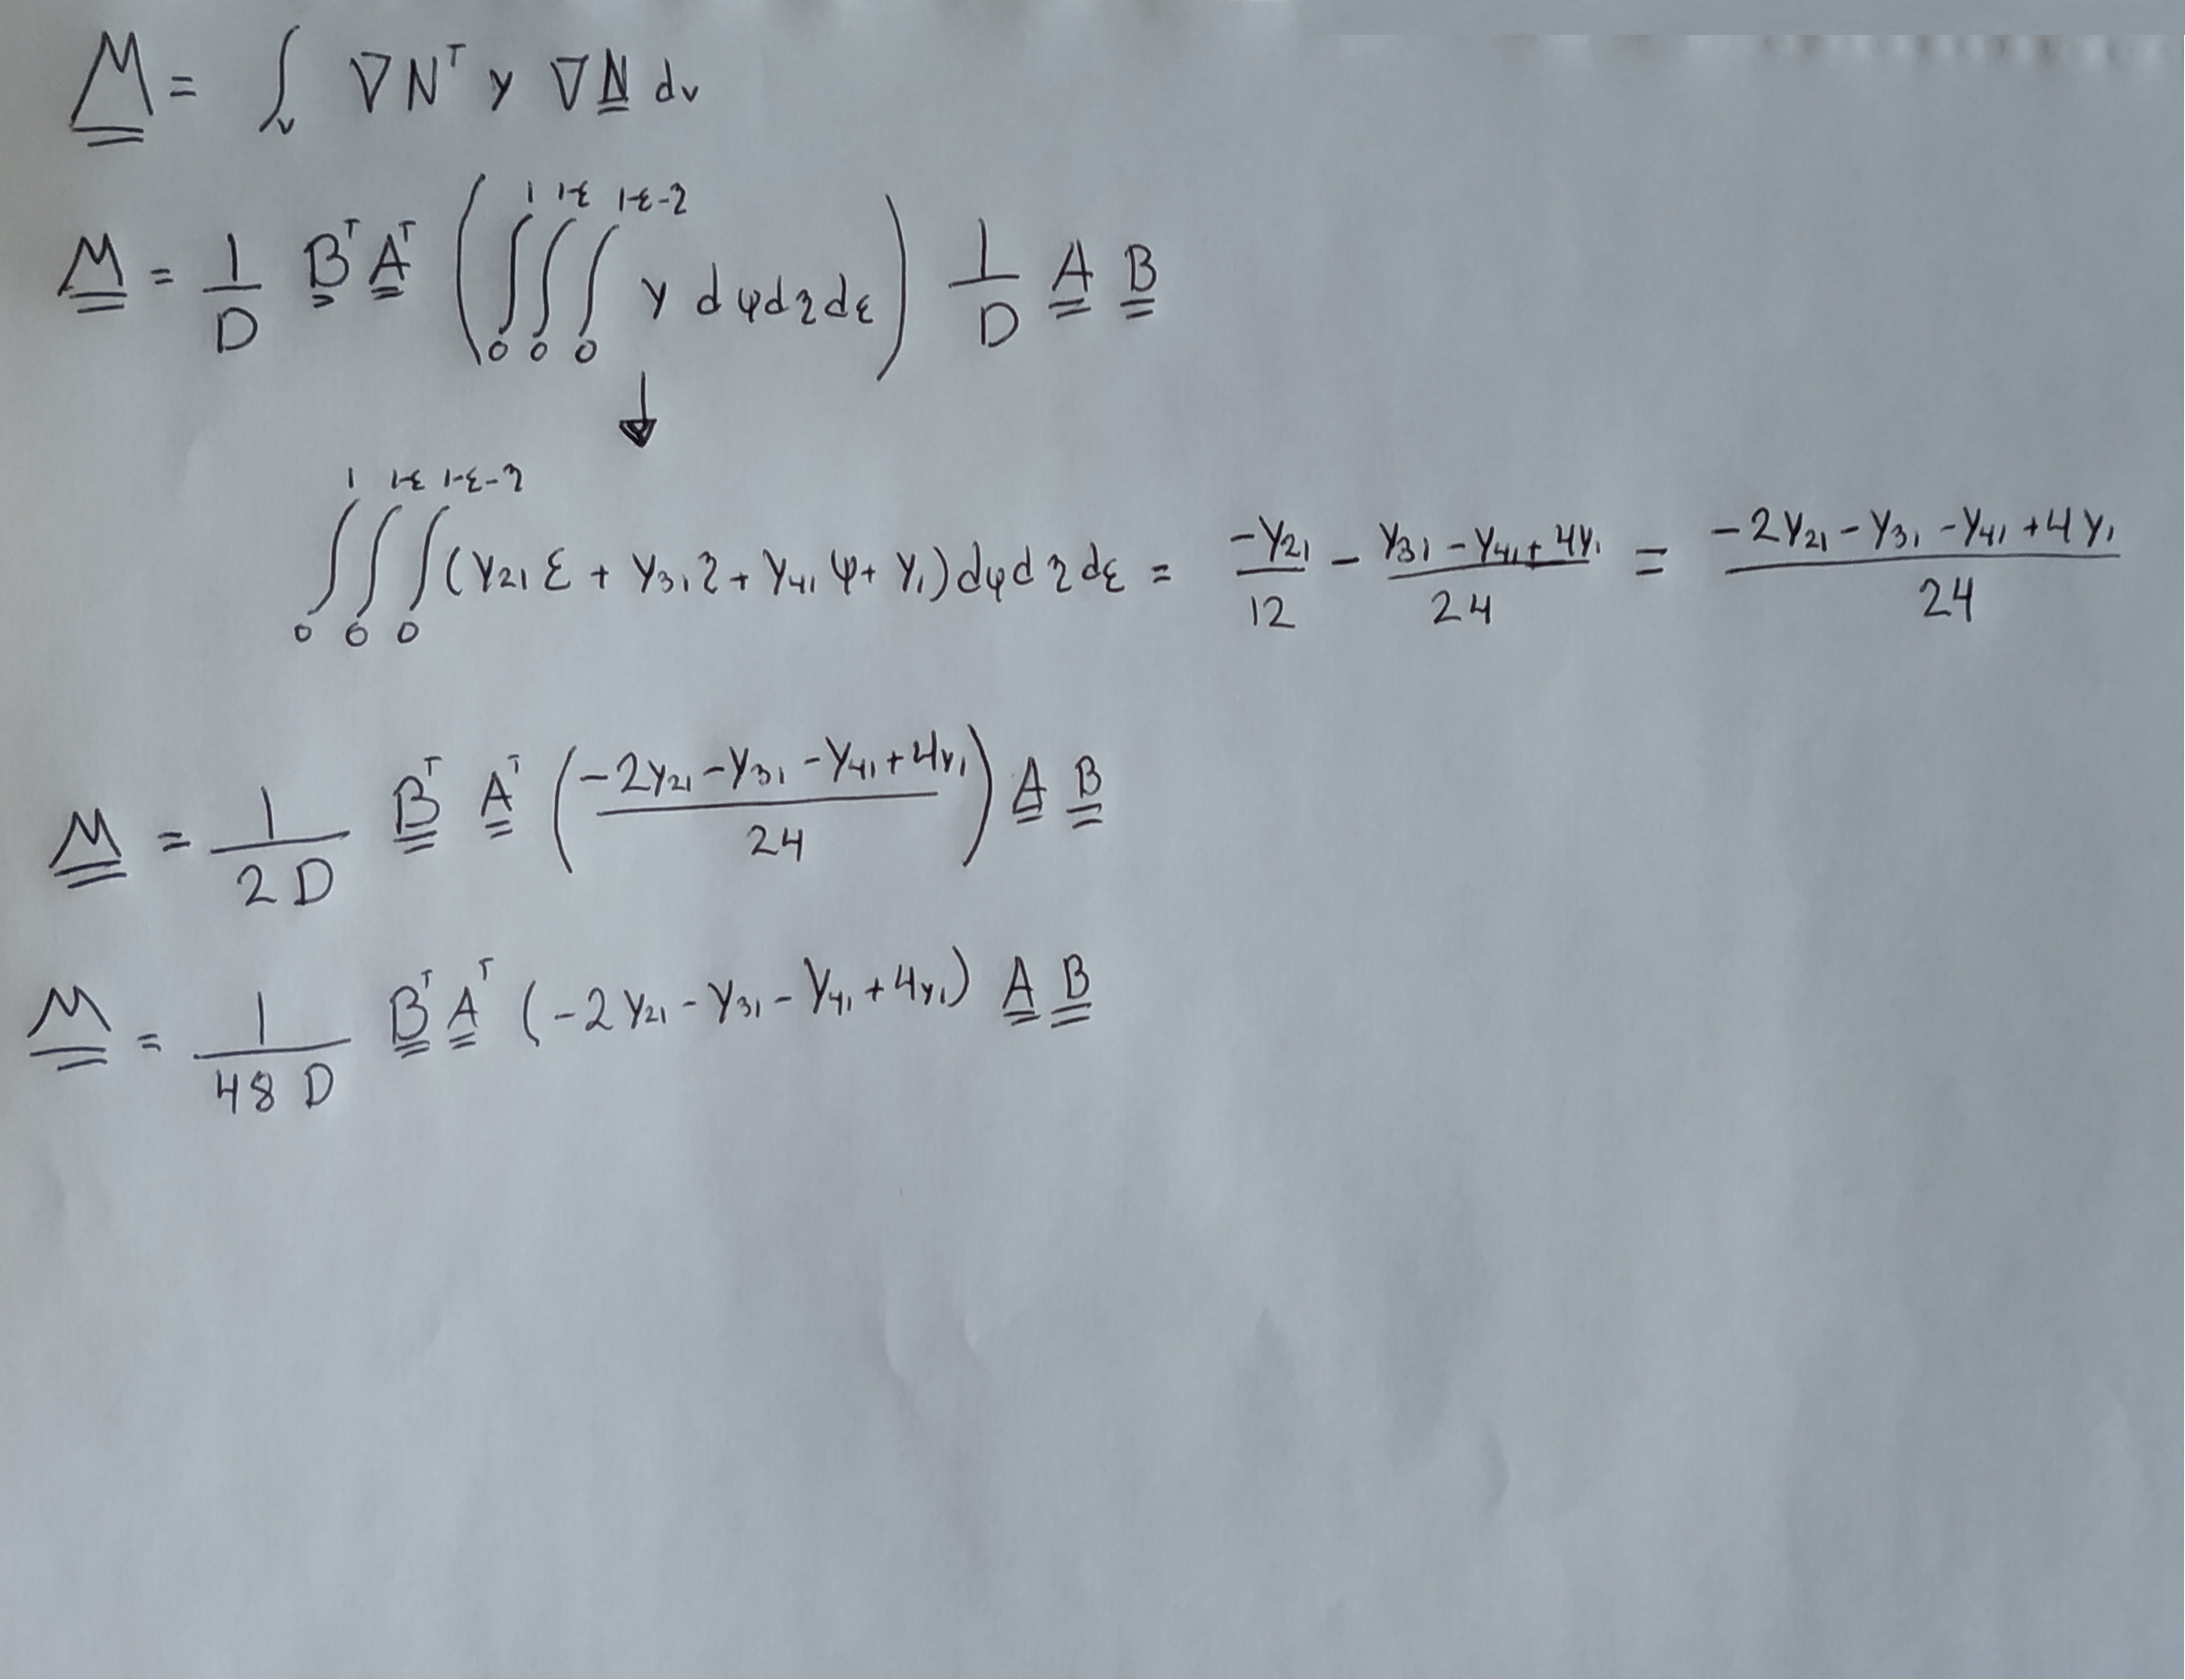 M = ∫_v ∇N^T y ∇N dv
M = 1/D B^T A^T ( ∫_0^1 ∫_0^{1-ε} ∫_0^{1-ε-η} y dψ dη dε ) 1/D A B
↓
∫_0^1 ∫_0^{1-ε} ∫_0^{1-ε-η} (y_21 ε + y_31 η + y_41 ψ + y_1) dψ dη dε = -y_21/12 - (y_31 - y_41 + 4y_1)/24 = (-2y_21 - y_31 - y_41 + 4y_1)/24
M = 1/(2D) B^T A^T ( (-2y_21 - y_31 - y_41 + 4y_1)/24 ) A B
M = 1/(48D) B^T A^T (-2y_21 - y_31 - y_41 + 4y_1) A B